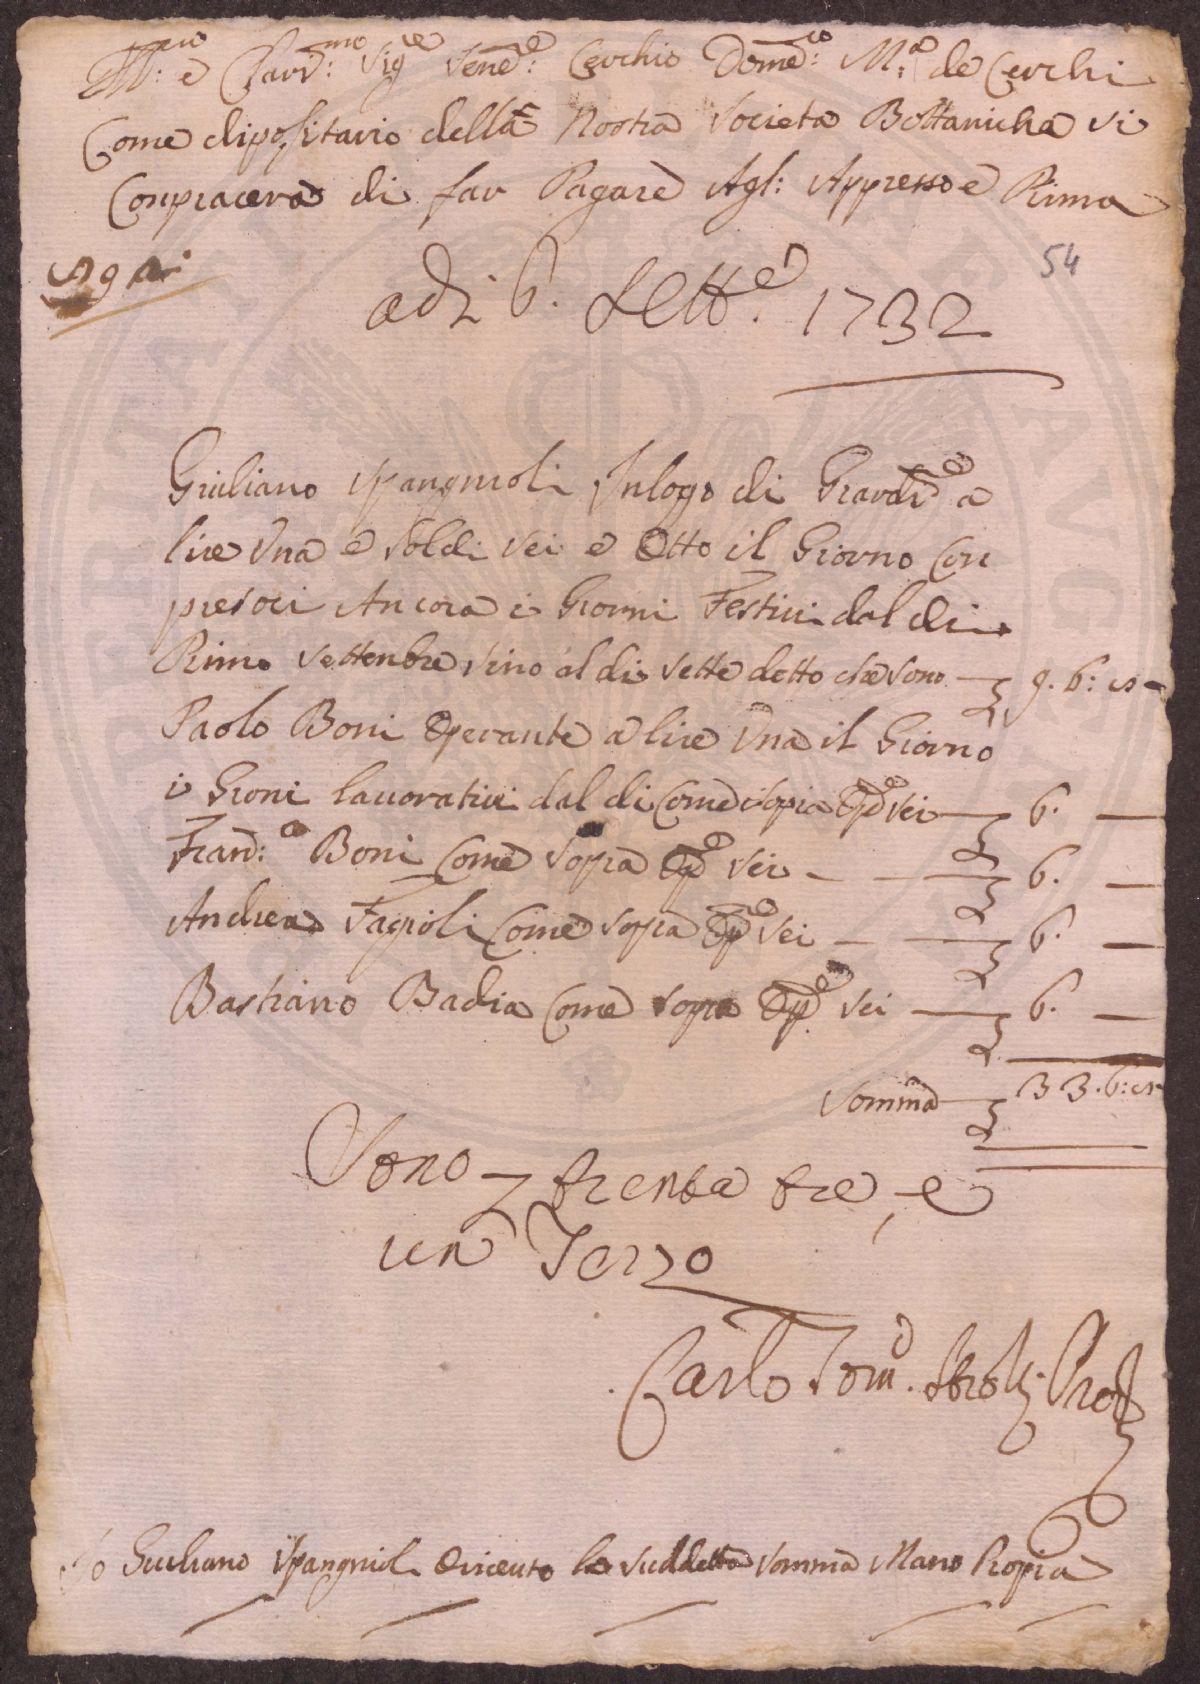 Ill:mo e Clariss:mo Sig:re Vene:e Cerchio Dome:co M:a de Cerchi
Come dipositario della Nostra Societa Bottanicha si
Conpiacera di far Pagare Agl: Appresso e Prima
54
adi 6. Sette: 1732
Giuliano Spangnioli Inlogo di Giardi:e a
lire Una e Soldi Sei e Otto il Giorno Con
presoci Ancora i Giorni Festivi dal di
Primo Settenbre Sino al di Sette detto che sono 9. 6: 8
Paolo Boni Operante a lire Una il Giorno
i Gioni lauoratiui dal di Come Sopia Op:e Sei 6. —
Fran:co Boni Come Sopra Op:e Sei 6. —
Andrea Fagioli Come Sopra Op:e Sei 6. —
Bastiano Badia Come Sopra Op:e Sei 6. —
Somma 33. 6: 8
Sono trenta tre, e
un Terzo
Carlo Tom:o
Io Giuliano Spangniol Riceuto la Suddetta Somma Mano Propia